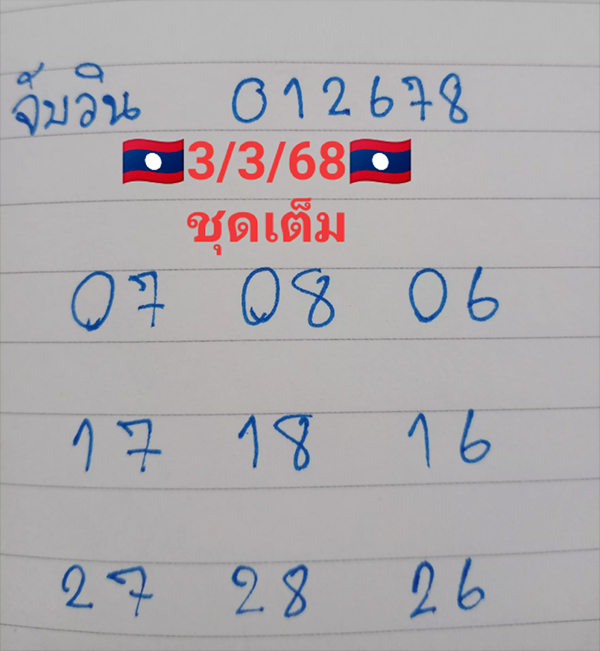 จับวิน 012678
3/3/68
ชุดเต็ม
07 08 06
17 18 16
27 28 26